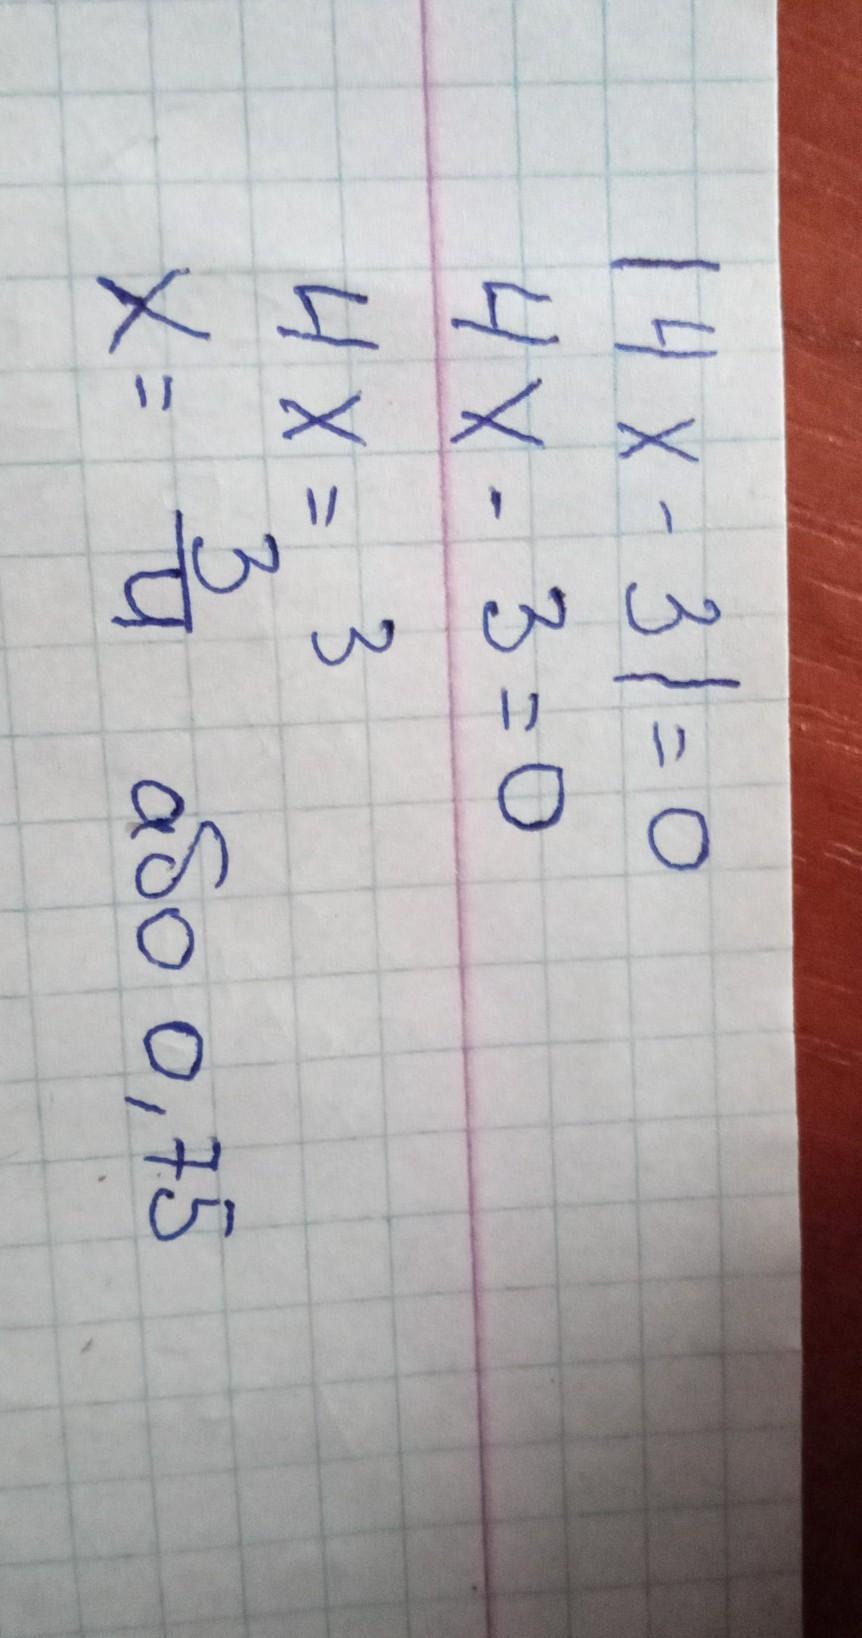 |4x - 3| = 0
4x - 3 = 0
4x = 3
x = 3/4 або 0,75